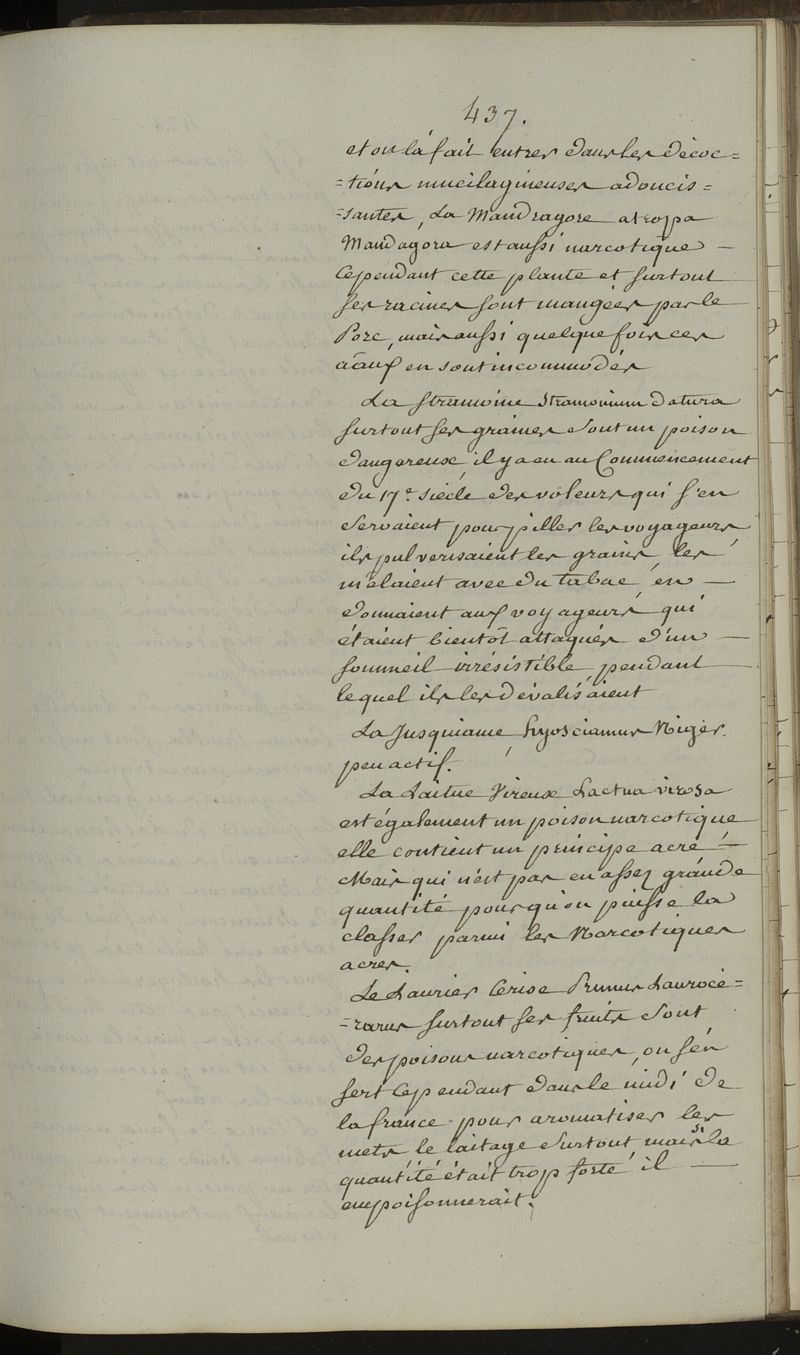 437.
et on la fait entrer dans les décoc=
=tions mucilagineuses adoucis=
=santes, La Mandragore atropa
Mandagora est aussi narcotique —
Cependant cette plante et surtout
ses racines sont mangées par le
Porc, mais aussi quelque fois ces
aāux en sont incommodés
La Stramoine Stramonium Datura
surtout ses graines sont un poison
dangereuse, il y a eu au Commencement
du 17.e siècle des voleurs qui s'en
servaient pour piller les voyageurs
ils pulverisaient les grains, les
mêlaient avec du tabac, en —
donnaient aux voyageurs qui
étaient bientôt attaqués d'un —
sommeil irrésistible, pendant —
lequel ils les dévalisaient
La Jusquiame, hyosciamus Niger
peu actif.
La Laitue Vireuse Lactua virosa
est également un poison narcotique
elle contient un principe acre —
Mais qui n'est pas en assez grande
quantité pour qu'on puisse la
classer parmi les Narcotiques
acres.
Le Laurier Cerise Prunus Lauroce=
=rarus surtout ses fruits sont
des poisons narcotiques, on s'en
sert Cependant dans le midi de
la france pour aromatiser les
mets, le laitage surtout mais si la
quantité était trop forte, il —
empoisonnerait.